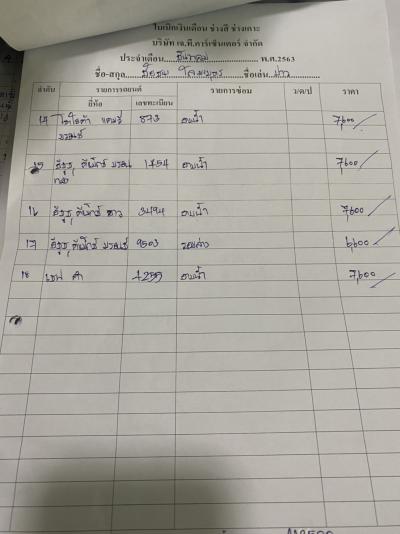 ใบเบิกเงินเดือน ช่างสี ช่างเคาะ
บริษัท เจ.ที.คาร์เซ็นเตอร์ จำกัด
ประจำเดือน ธันวาคม พ.ศ.2563
ชื่อ-สกุล ชื่อเล่น
ลำดับ รายการรถยนต์ รายการซ่อม ว/ด/ป ราคา
ยี่ห้อ เลขทะเบียน
14 โตโยต้า แคมรี่ 873 อบน้ำ 7,600
บรอนซ์
15 อีซูซุ ดีแม็กซ์ 1454 อบน้ำ 7,600
16 อีซูซุ ดีแม็กซ์ ขาว 3494 อบน้ำ 7,600
17 อีซูซุ ดีแม็กซ์ บรอนซ์ 9503 6,600
18 เชฟ ดำ 4255 อบน้ำ 7,600